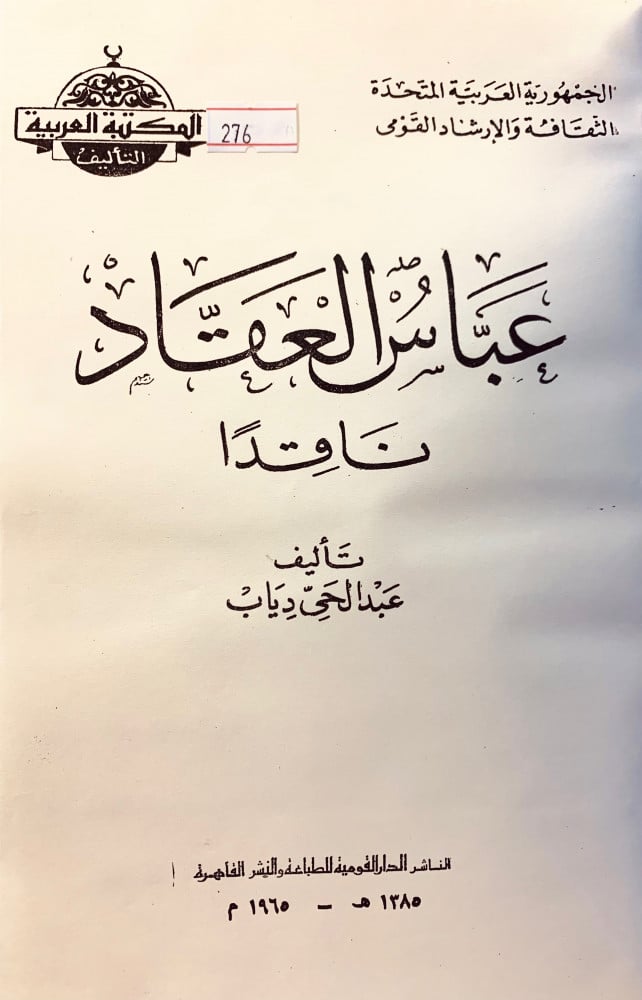 الجمهورية العربية المتحدة
الثقافة والإرشاد القومى
المكتبة العربية
التأليف
276
عَبَّاسُ الْعَقَّادْ
نَاقِدًا
تَأليف
عَبْدالحَىّ دِيَابْ
الناشر الدار القومية للطباعة والنشر القاهرة
١٣٨٥ هـ – ١٩٦٥ م